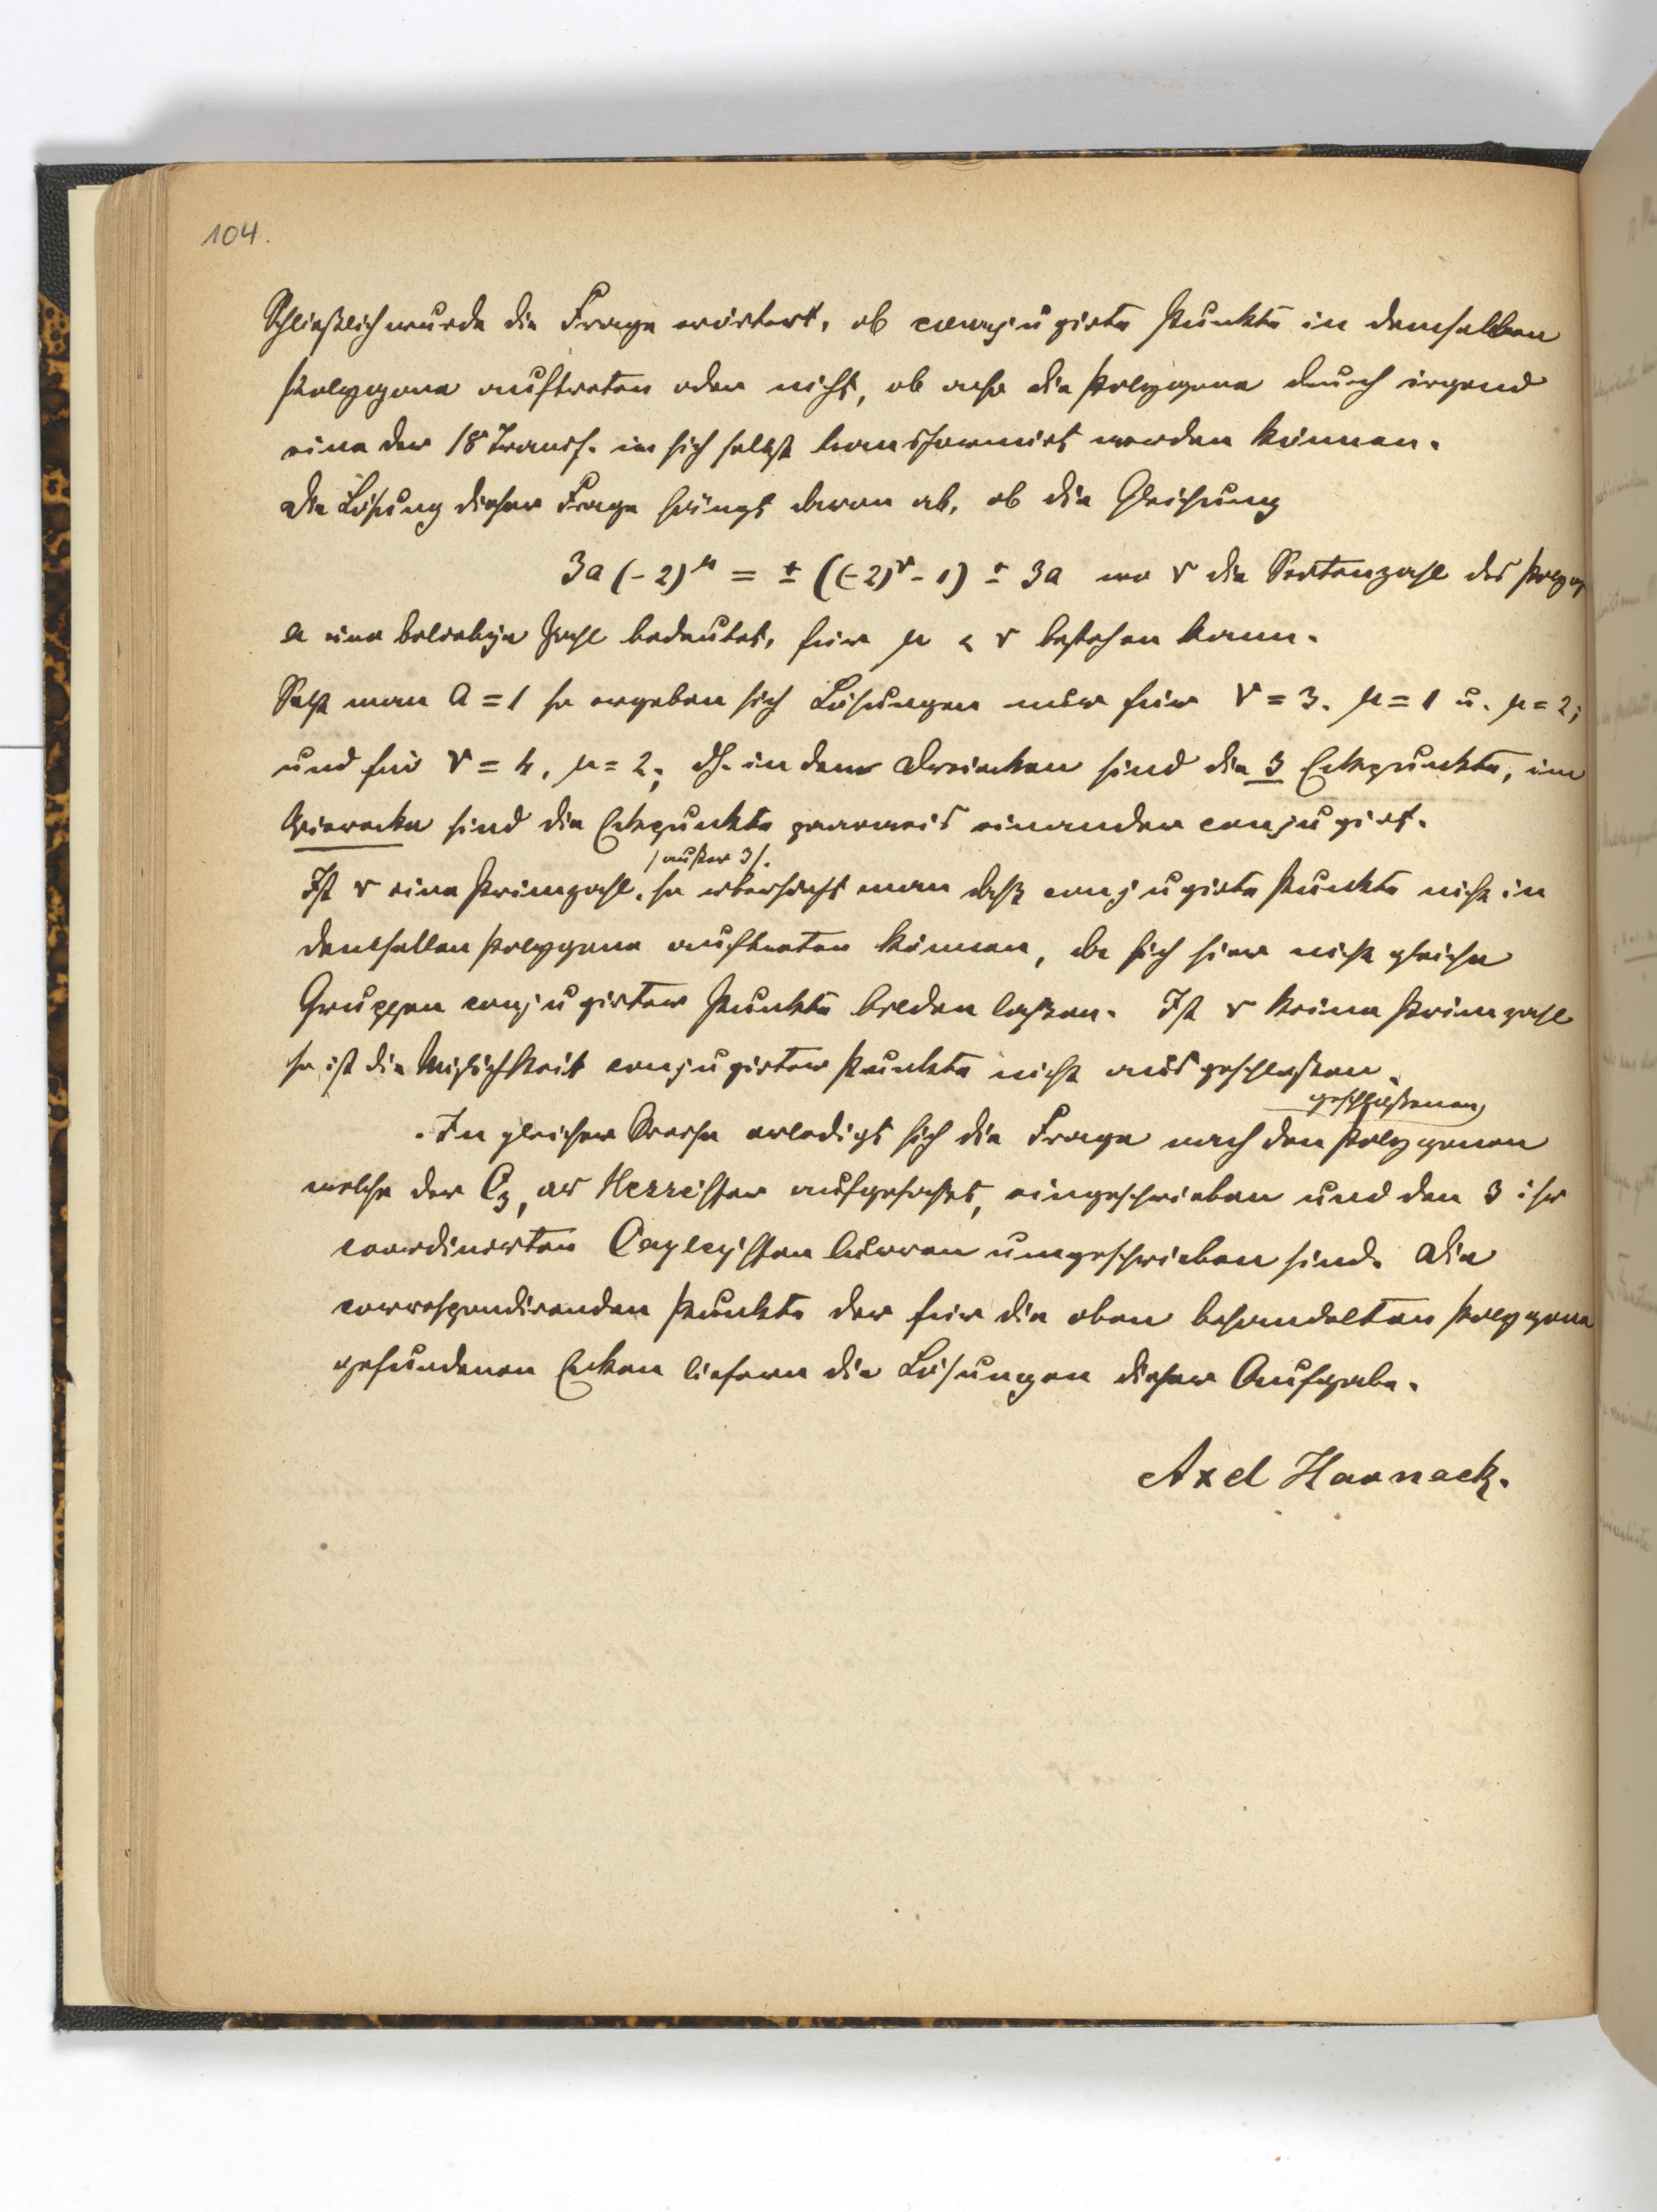 104.
Schließlich wurde die Frage erörtert, ob conjugirte Punkte in demselben
Polygone auftreten oder nicht, ob also die Polygone durch irgend
eine der 18 Transf. in sich selbst transformirt werden können.
Die Lösung dieser Frage hängt davon ab, ob die Gleichung
3a (-2)^μ = ± ((-2)^ν - 1) ± 3a wo ν die Seitenzahl des Polyg
a eine beliebige Zahl bedeutet, für μ < ν bestehen kann.
Setzt man a = 1 so ergeben sich Lösungen nur für ν = 3. μ = 1 u. μ = 2;
und für ν = 4, μ = 2; dh. in den Dreiecken sind die 3 Eckpunkte, im
Vierecke sind die Eckpunkte paarweis einander conjugirt.
(außer 3).
Ist ν eine Primzahl, so übersieht man daß conjugirte Punkte nicht in
demselben Polygone auftreten können, da sich hier nicht gleiche
Gruppen conjugirter Punkte bilden laßen. Ist ν keine Primzahl
so ist die Möglichkeit conjugirter Punkte nicht ausgeschloßen.
geschloßenen
In gleicher Weise erledigt sich die Frage nach den Polygonen
welche der C₃, als Hessesche aufgefaßt, eingeschrieben und den 3 ihr
coordinirten Cayleyschen Curven umgeschrieben sind. Die
correspondirenden Punkte der für die oben behandelten Polygone
gefundenen Ecken liefern die Lösungen dieser Aufgabe.
Axel Harnack.